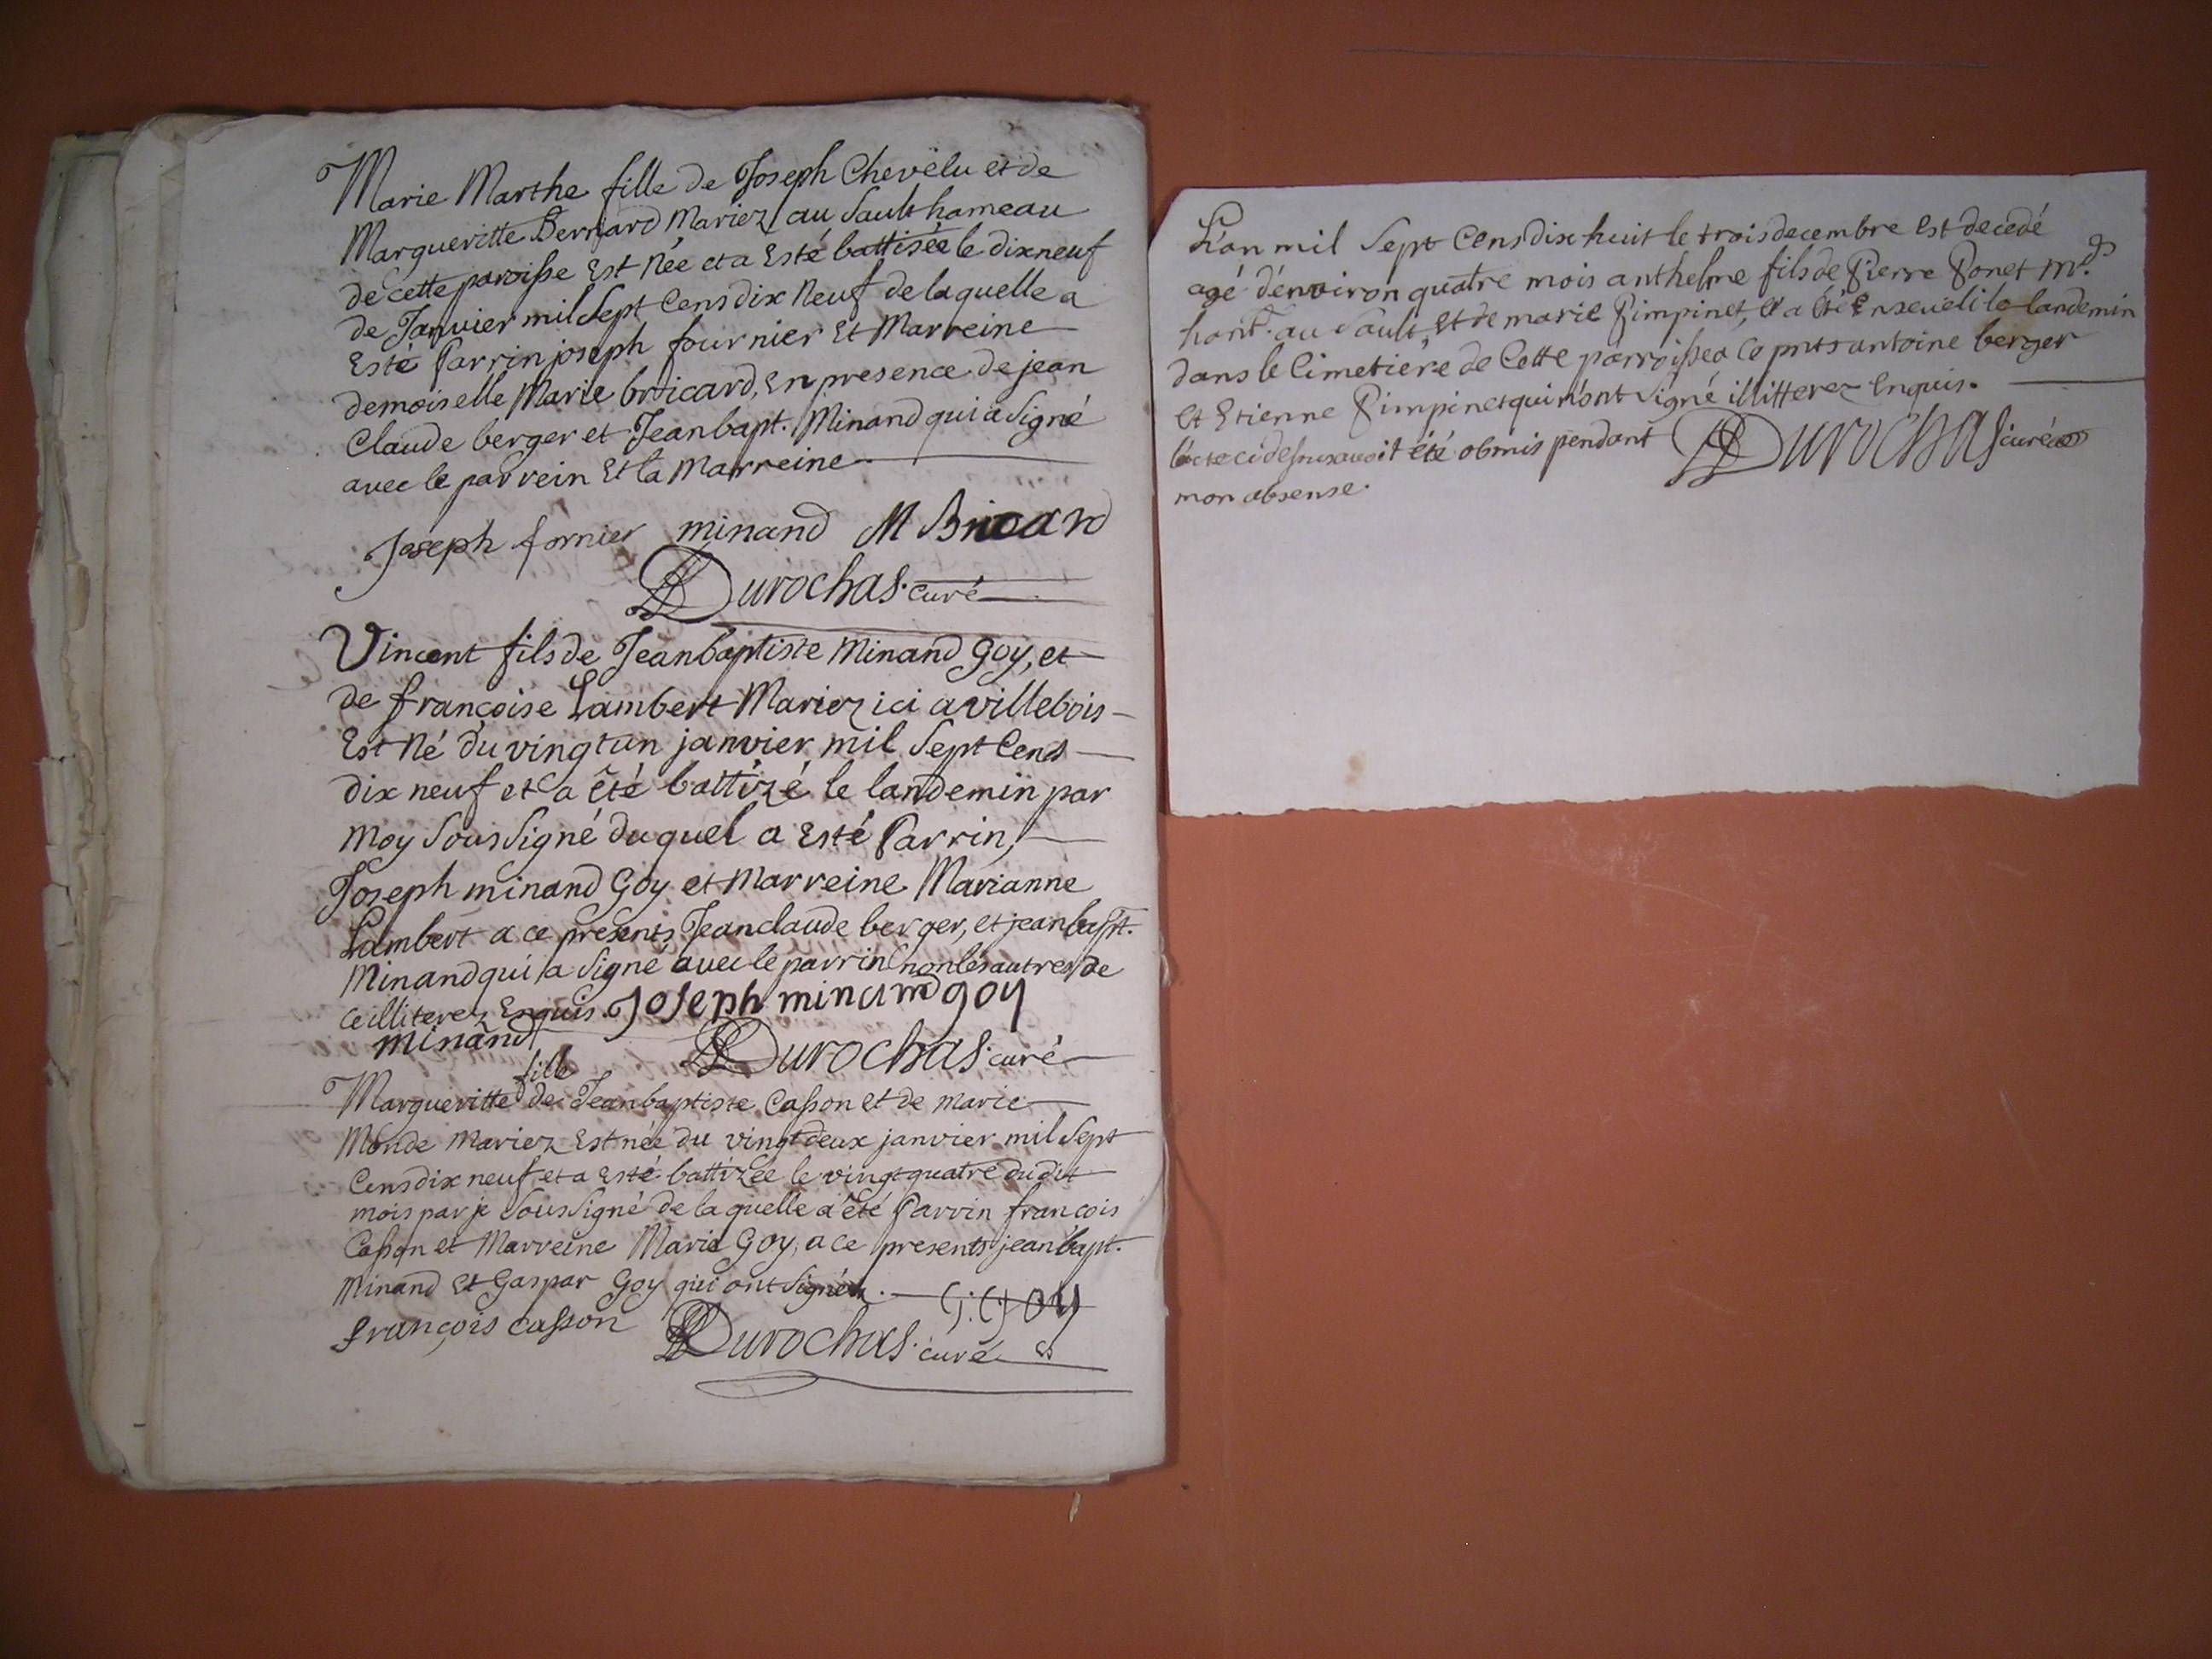 Marie Marthe fille de Joseph Chevëlu et de
Margueritte Bernard Mariez au Sault hameau
de cette paroisse Est Née et a Esté battisée le dixneuf
de Janvier mil Sept Cens dix Neuf de laquelle a
Esté Parrin joseph fournier Et Marreine
demoiselle Marie bricard, En presence de jean
Claude berger et Jean bapt. Minand qui a Signé
avec le parrein Et la Marreine.
Joseph fornier minand M Bricard
Durochas. curé
Vincent fils de Jeanbaptiste Minand Goy, et
de françoise Lambert Mariez ici a villebois
Est Né du vingtun janvier mil Sept Cens
dix neuf et a êté battizé le landemin par
Moy Sous Signé duquel a Esté Parrin,
Joseph minand Goy et Marreine Marianne
Lambert a ce presents Jeanclaude berger, et jean bapt.
Minand qui a Signé avec le parrin non les autres de
ce illiterez Enquis. Joseph minand goy
minand
Durochas. curé
fille
Margueritte de Jeanbaptiste Casson et de marie
Monde Mariez Est née du vingtdeux janvier mil Sept
Cens dix neuf et a Esté battizée le vingtquatre dudit
mois par je Sous Signé de laquelle a été Parrin francois
Casson et Marreine Marie Goy, a ce presents jean bapt.
Minand Et Gaspar Goy qui ont Signéz. G: Goy
françois casson
Durochas. curé
L'an mil Sept Cens dix huit le trois decembre Est decedé
agé d'environ quatre mois anthelme fils de Pierre Ponet md
hont. au Sault, Et de marie Pimpinet, Et a été Enseveli le landemin
dans le Cimetiére de Cette parroisse a ce pnts antoine berger
Et Etienne Pimpinet qui n'ont Signé illitterez Enquis.
l'acte cidessus avoit été obmis pendant Durochas curé
mon absense.